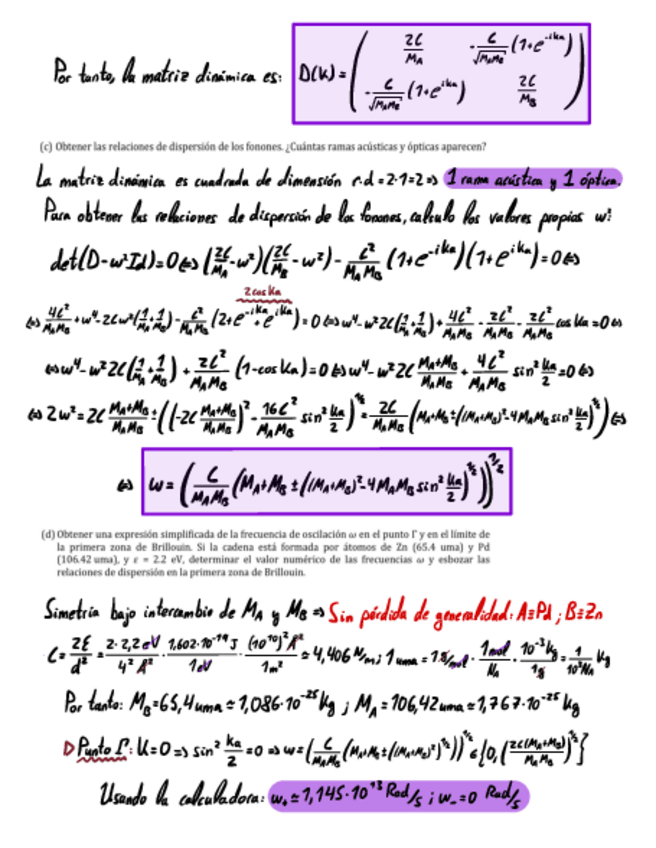 Por tanto, la matriz dinámica es: D(k) = ( 2C/M_A   -C/√(M_A M_B) (1+e^{-ika}) ; -C/√(M_A M_B) (1+e^{ika})   2C/M_B )
(c) Obtener las relaciones de dispersión de los fonones. ¿Cuántas ramas acústicas y ópticas aparecen?
La matriz dinámica es cuadrada de dimensión r·d = 2·1 = 2 ⇒ 1 rama acústica y 1 óptica.
Para obtener las relaciones de dispersión de los fonones, calculo los valores propios ω²:
det(D-ω²Id) = 0 ⇔ (2C/M_A - ω²)(2C/M_B - ω²) - C²/(M_A M_B) (1+e^{-ika})(1+e^{ika}) = 0 ⇔
2 cos ka
⇔ 4C²/(M_A M_B) + ω⁴ - 2Cω²(1/M_A + 1/M_B) - C²/(M_A M_B) (2+e^{-ika}+e^{ika}) = 0 ⇔ ω⁴ - ω²2C(1/M_A + 1/M_B) + 4C²/(M_A M_B) - 2C²/(M_A M_B) - 2C²/(M_A M_B) cos ka = 0 ⇔
⇔ ω⁴ - ω²2C(1/M_A + 1/M_B) + 2C²/(M_A M_B) (1-cos ka) = 0 ⇔ ω⁴ - ω²2C (M_A+M_B)/(M_A M_B) + 4C²/(M_A M_B) sin² ka/2 = 0 ⇔
⇔ 2ω² = 2C (M_A+M_B)/(M_A M_B) ± ((-2C (M_A+M_B)/(M_A M_B))² - 16C²/(M_A M_B) sin² ka/2)^{1/2} = 2C/(M_A M_B) (M_A+M_B ± ((M_A+M_B)² - 4M_A M_B sin² ka/2)^{1/2}) ⇔
⇔ ω = (C/(M_A M_B) (M_A+M_B ± ((M_A+M_B)² - 4M_A M_B sin² ka/2)^{1/2}))^{1/2}
(d) Obtener una expresión simplificada de la frecuencia de oscilación ω en el punto Γ y en el límite de
la primera zona de Brillouin. Si la cadena está formada por átomos de Zn (65.4 uma) y Pd
(106.42 uma), y ε = 2.2 eV, determinar el valor numérico de las frecuencias ω y esbozar las
relaciones de dispersión en la primera zona de Brillouin.
Simetría bajo intercambio de M_A y M_B ⇒ Sin pérdida de generalidad: A≡Pd ; B≡Zn
C = 2ε/d² = 2·2,2 eV/4² Å² · 1,602·10⁻¹⁹ J/1eV · (10¹⁰)² Å²/1m² ≃ 4,406 N/m ; 1 uma = 1 g/mol · 1mol/N_A · 10⁻³kg/1g = 1/10³N_A kg
Por tanto: M_B = 65,4 uma ≃ 1,086·10⁻²⁵ kg ; M_A = 106,42 uma ≃ 1,767·10⁻²⁵ kg
▷ Punto Γ: k=0 ⇒ sin² ka/2 = 0 ⇒ ω = (C/(M_A M_B) (M_A+M_B ± ((M_A+M_B)²)^{1/2}))^{1/2} ∈ {0, (2C(M_A+M_B)/(M_A M_B))^{1/2}}
Usando la calculadora: ω₊ ≃ 1,145·10¹³ Rad/s ; ω₋ = 0 Rad/s